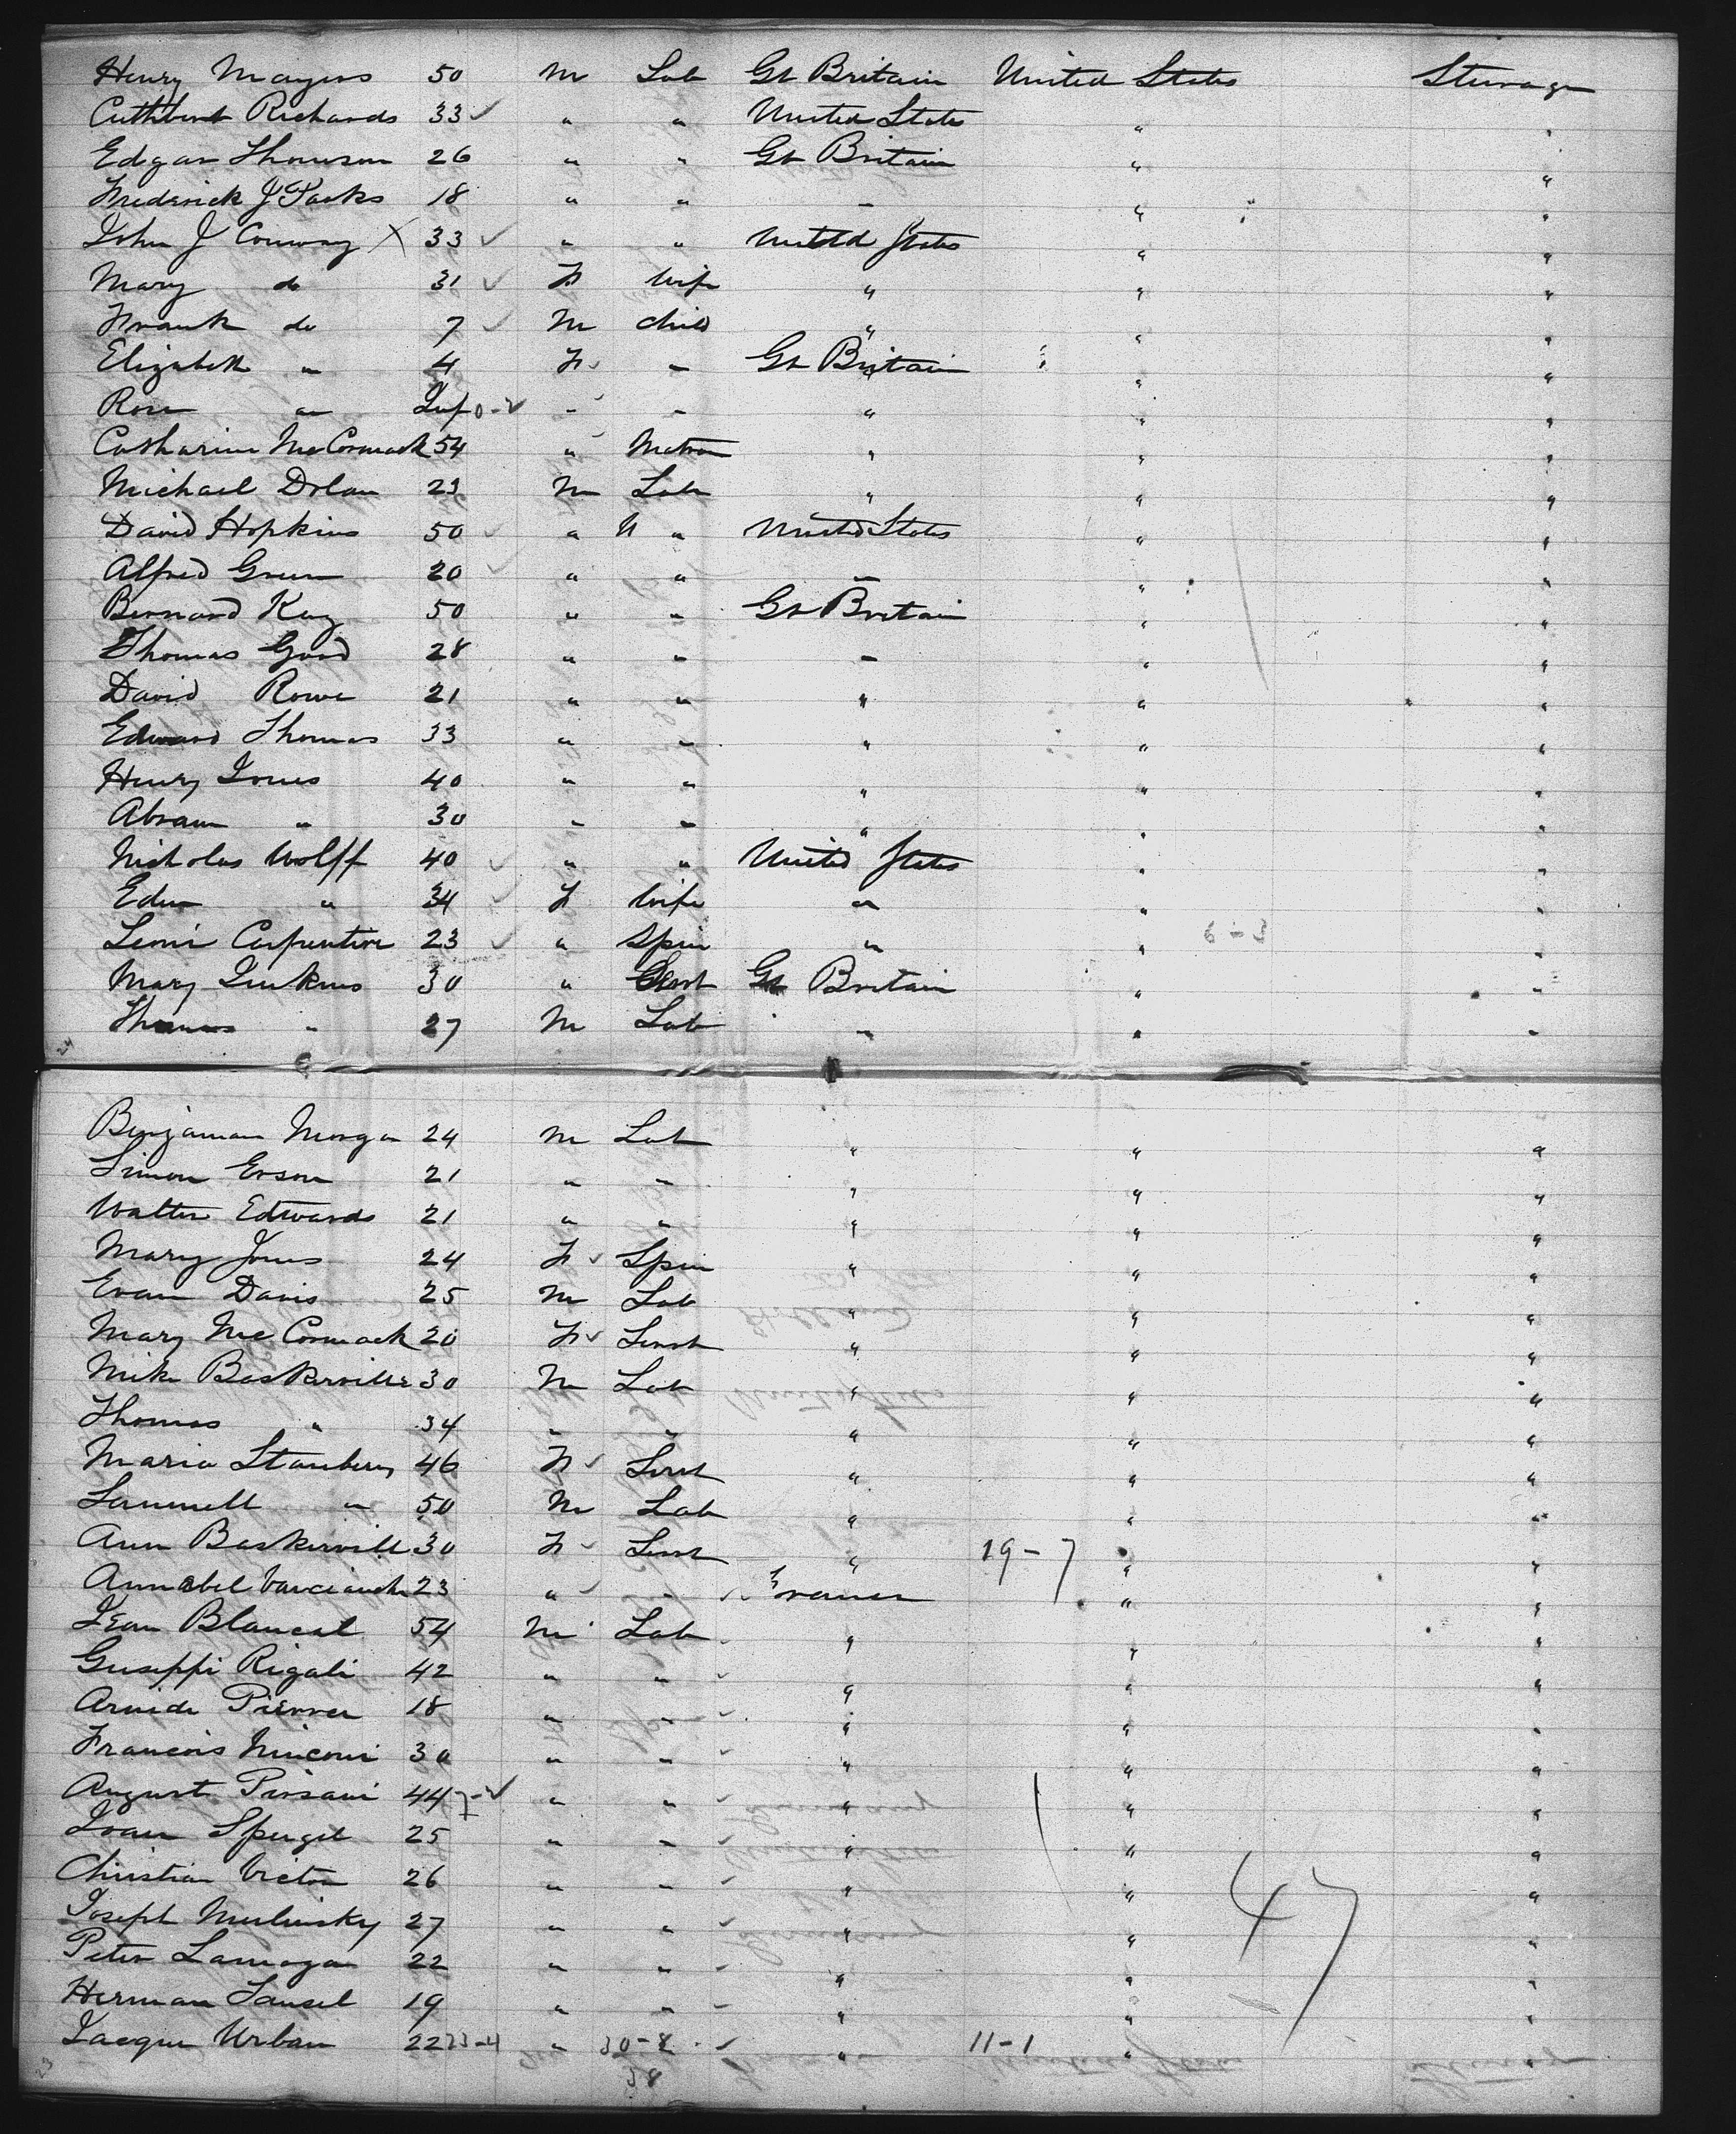 Henry Mayers 50 m Lab Gt Britain United States Steerage
Cuthbert Richards 33 ✓ " " United States " "
Edgar Thomson 26 " " Gt Britain " "
Frederick J Packs 18 " " " " "
John J Conway X 33 ✓ " " United States " "
Mary do 31 ✓ F Wife " " "
Frank do 7 ✓ M child " " "
Elizabeth " 4 F " Gt Britain " "
Rose " Inf 0-✓ " " " " "
Catharine McCormack 54 " Matron " " "
Michael Dolan 23 M Lab " " "
David Hopkins 50 ✓ " " United States " "
Alfred Green 20 ✓ " " " " "
Bernard Kay 50 " " Gt Britain " "
Thomas Good 28 " " " " "
David Rowe 21 " " " " "
Edward Thomas 33 " " " " "
Henry Jones 40 " " " " "
Abram " 30 " " " " "
Nicholas Wolff 40 ✓ " " United States " "
Edw " 34 ✓ F Wife " " "
Leoni Carpentire 23 ✓ " Spin " " 6-3 "
Mary Jenkins 30 " Gt Britain " "
Thomas " 27 M Lab " " "
24
Benjaman Morgan 24 m Lab " " "
Simon Erson 21 " " " " "
Walter Edwards 21 " " " " "
Mary Jones 24 F ✓ Spin " " "
Evan Davis 25 M Lab " " "
Mary McCormack 20 F ✓ Servt " " "
Mike Baskerville 30 M Lab " " "
Thomas " 34 " " " " "
Maria Stanbery 46 F ✓ Servt " " "
Sammell " 50 M Lab " " "
Ann Baskervill 30 F Servt " 19-7 " "
Annabel 23 " " France " "
Jean Blancal 54 M Lab " " "
Guseppi Rigali 42 " " " " "
Armide Pierre 18 " " " " "
Francois Minconi 30 " " " " "
August Pissani 44 7-✓ " " " " "
Spengel 25 " " " " "
Christian Victor 26 " " " " "
Joseph Mulinsky 27 " " " " "
Peter Lamoga 22 " " " " "
Herman Sansel 19 " " " " "
Jacque Urban 22 23-4 " 30-8 " 11-1 " "
38
47